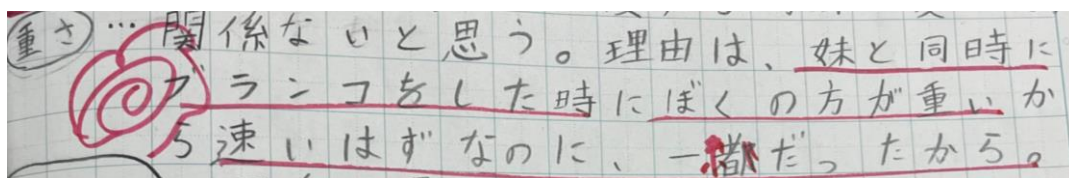 重さ…関係ないと思う。理由は、妹と同時に
ブランコをした時にぼくの方が重いか
ら速いはずなのに、一緒だったから。